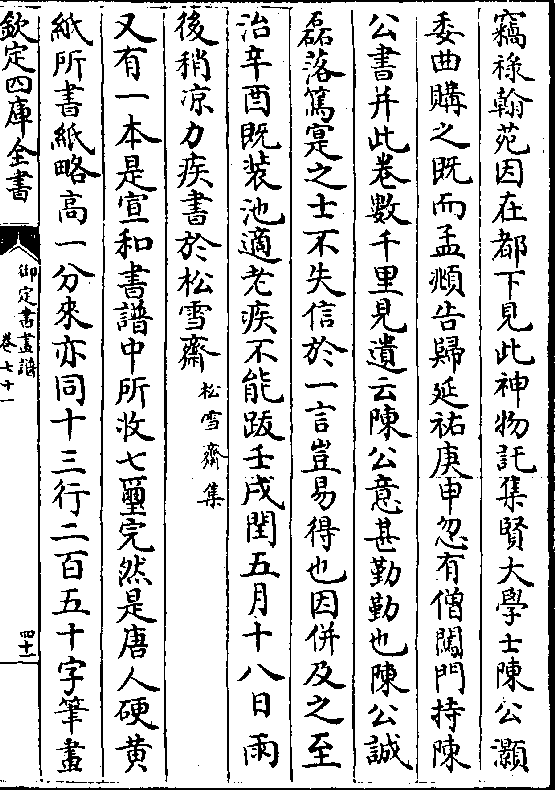 竊祿翰苑因在都下見此神物託集賢大學士陳公灝
委曲購之既而孟頫告歸延祐庚申忽有僧闖門持陳
公書并此卷數千里見遺云陳公意甚勤勤也陳公誠
磊落篤寔之士不失信於一言豈易得也因併及之至
治辛酉既装池適老疾不能跋壬戌閏五月十八日雨
後稍凉力疾書於松雪齋松雪齋集
又有一本是宣和書譜中所收七璽完然是唐人硬黄
紙所書紙略高一分來亦同十三行二百五十字筆畫
欽定四庫全書
御定書畫譜
卷七十一
四十二